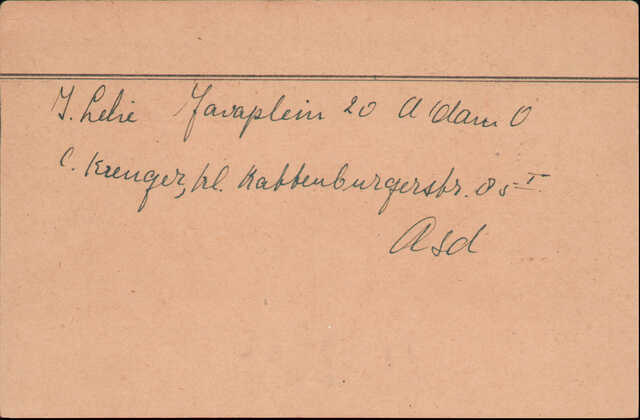 J. Lelie Javaplein 20 A'dam O
C. Kreuger, kl. Kattenburgerstr. 85 I
Asd